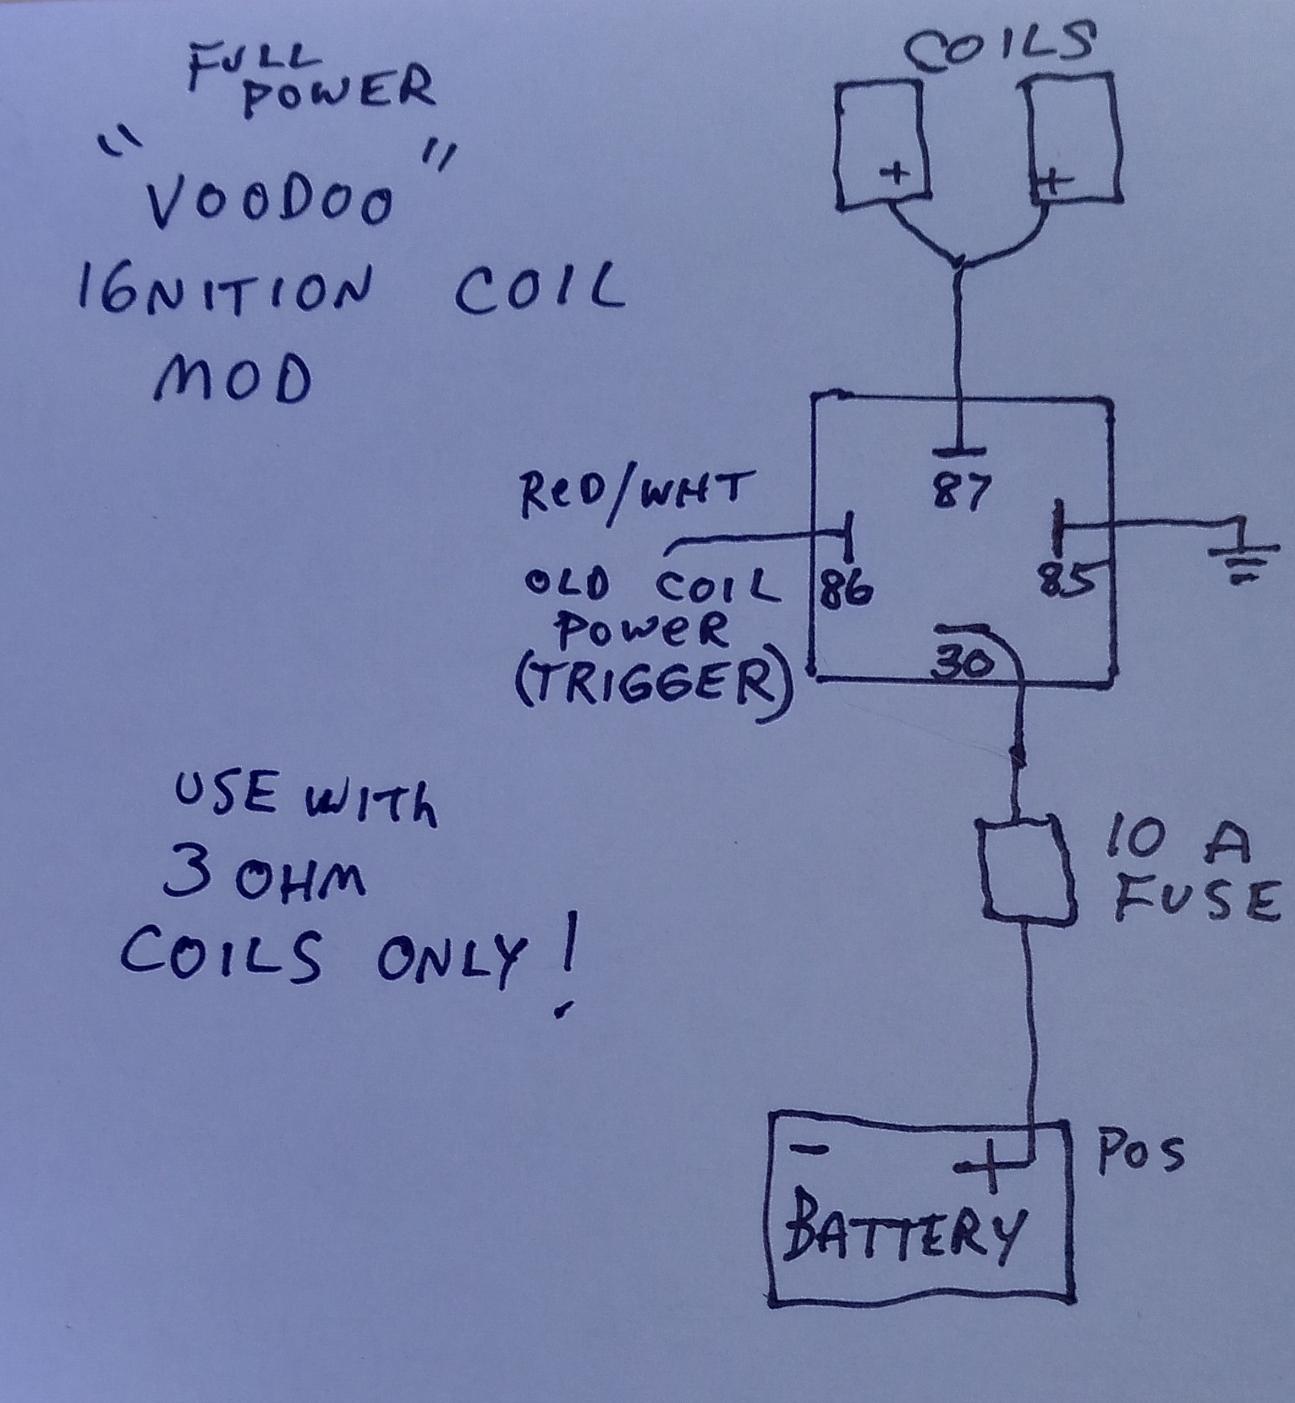 FULL
POWER
"VOODOO"
IGNITION COIL
MOD
COILS
+ +
87
RED/WHT
OLD COIL
POWER
(TRIGGER)
86
85
30
USE WITh
3 OHM
COILS ONLY!
10 A
FUSE
- +
POS
BATTERY